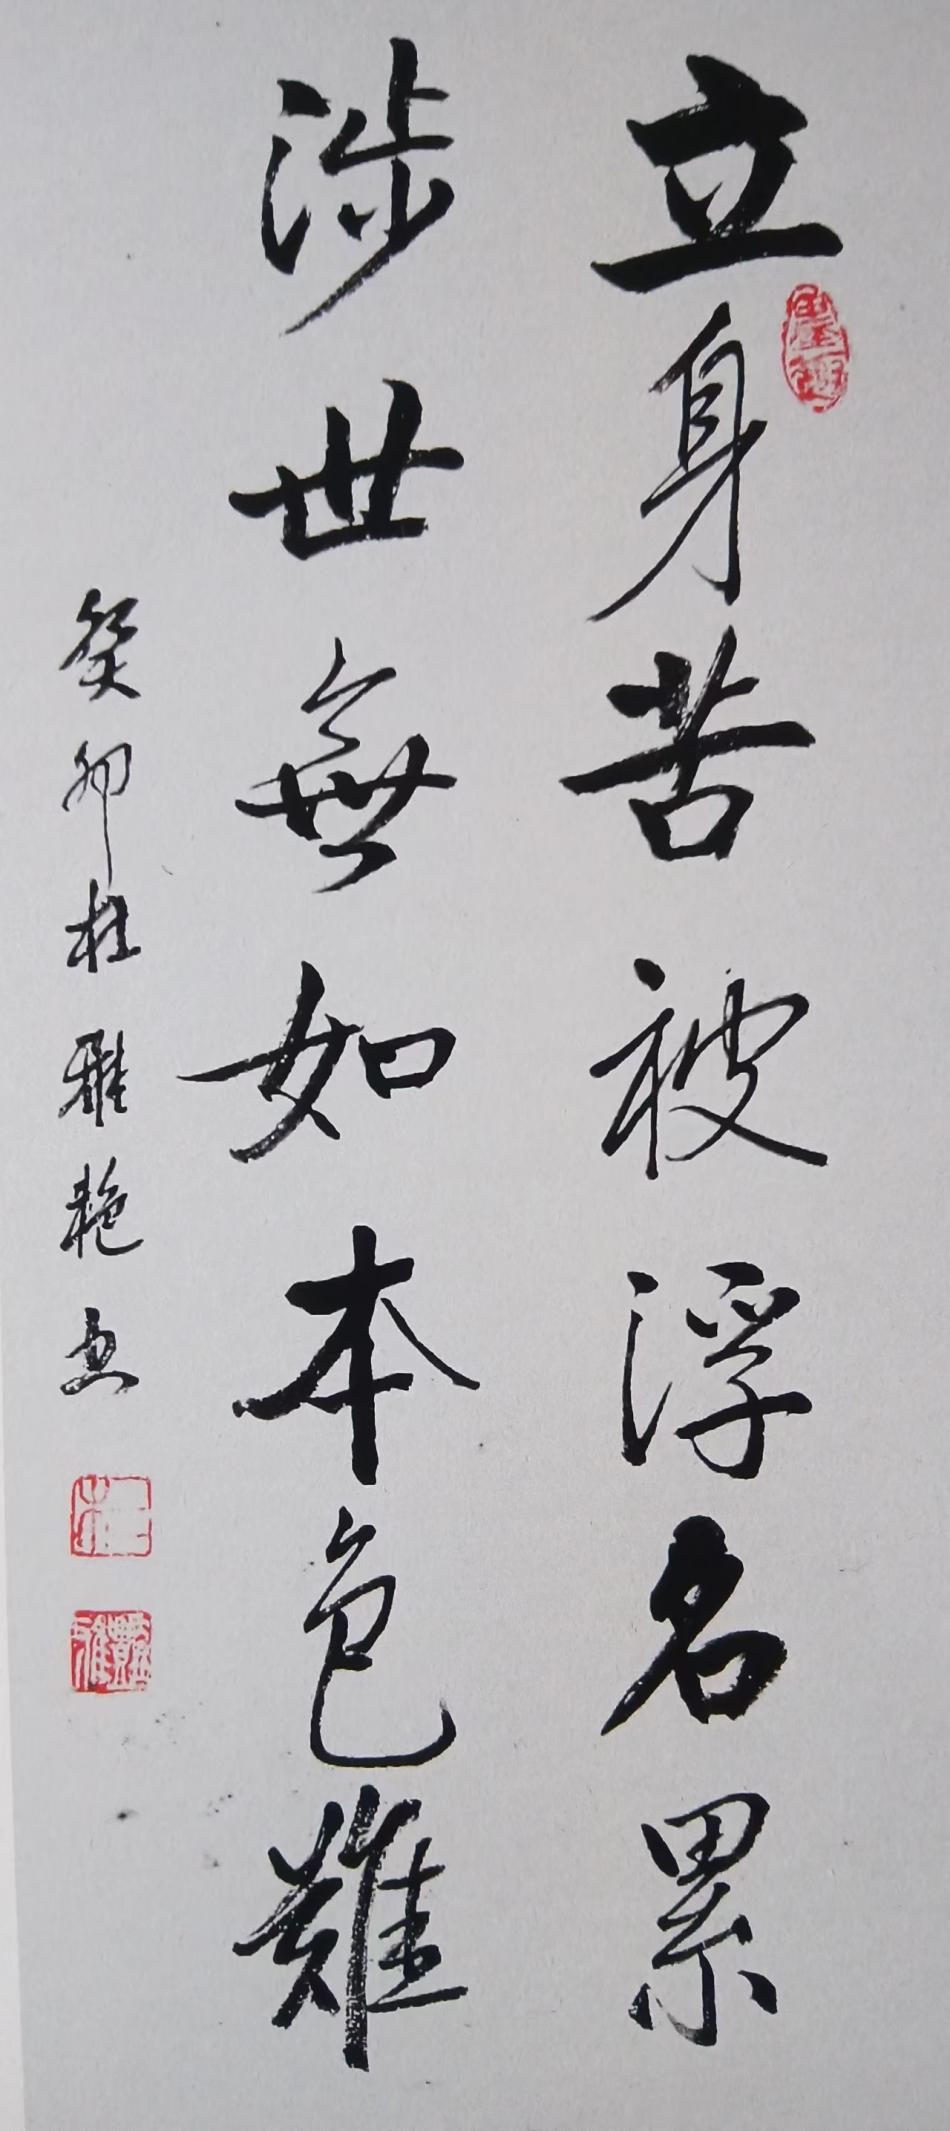 立身苦被浮名累
涉世無如本色難
癸卯杜雅艳书